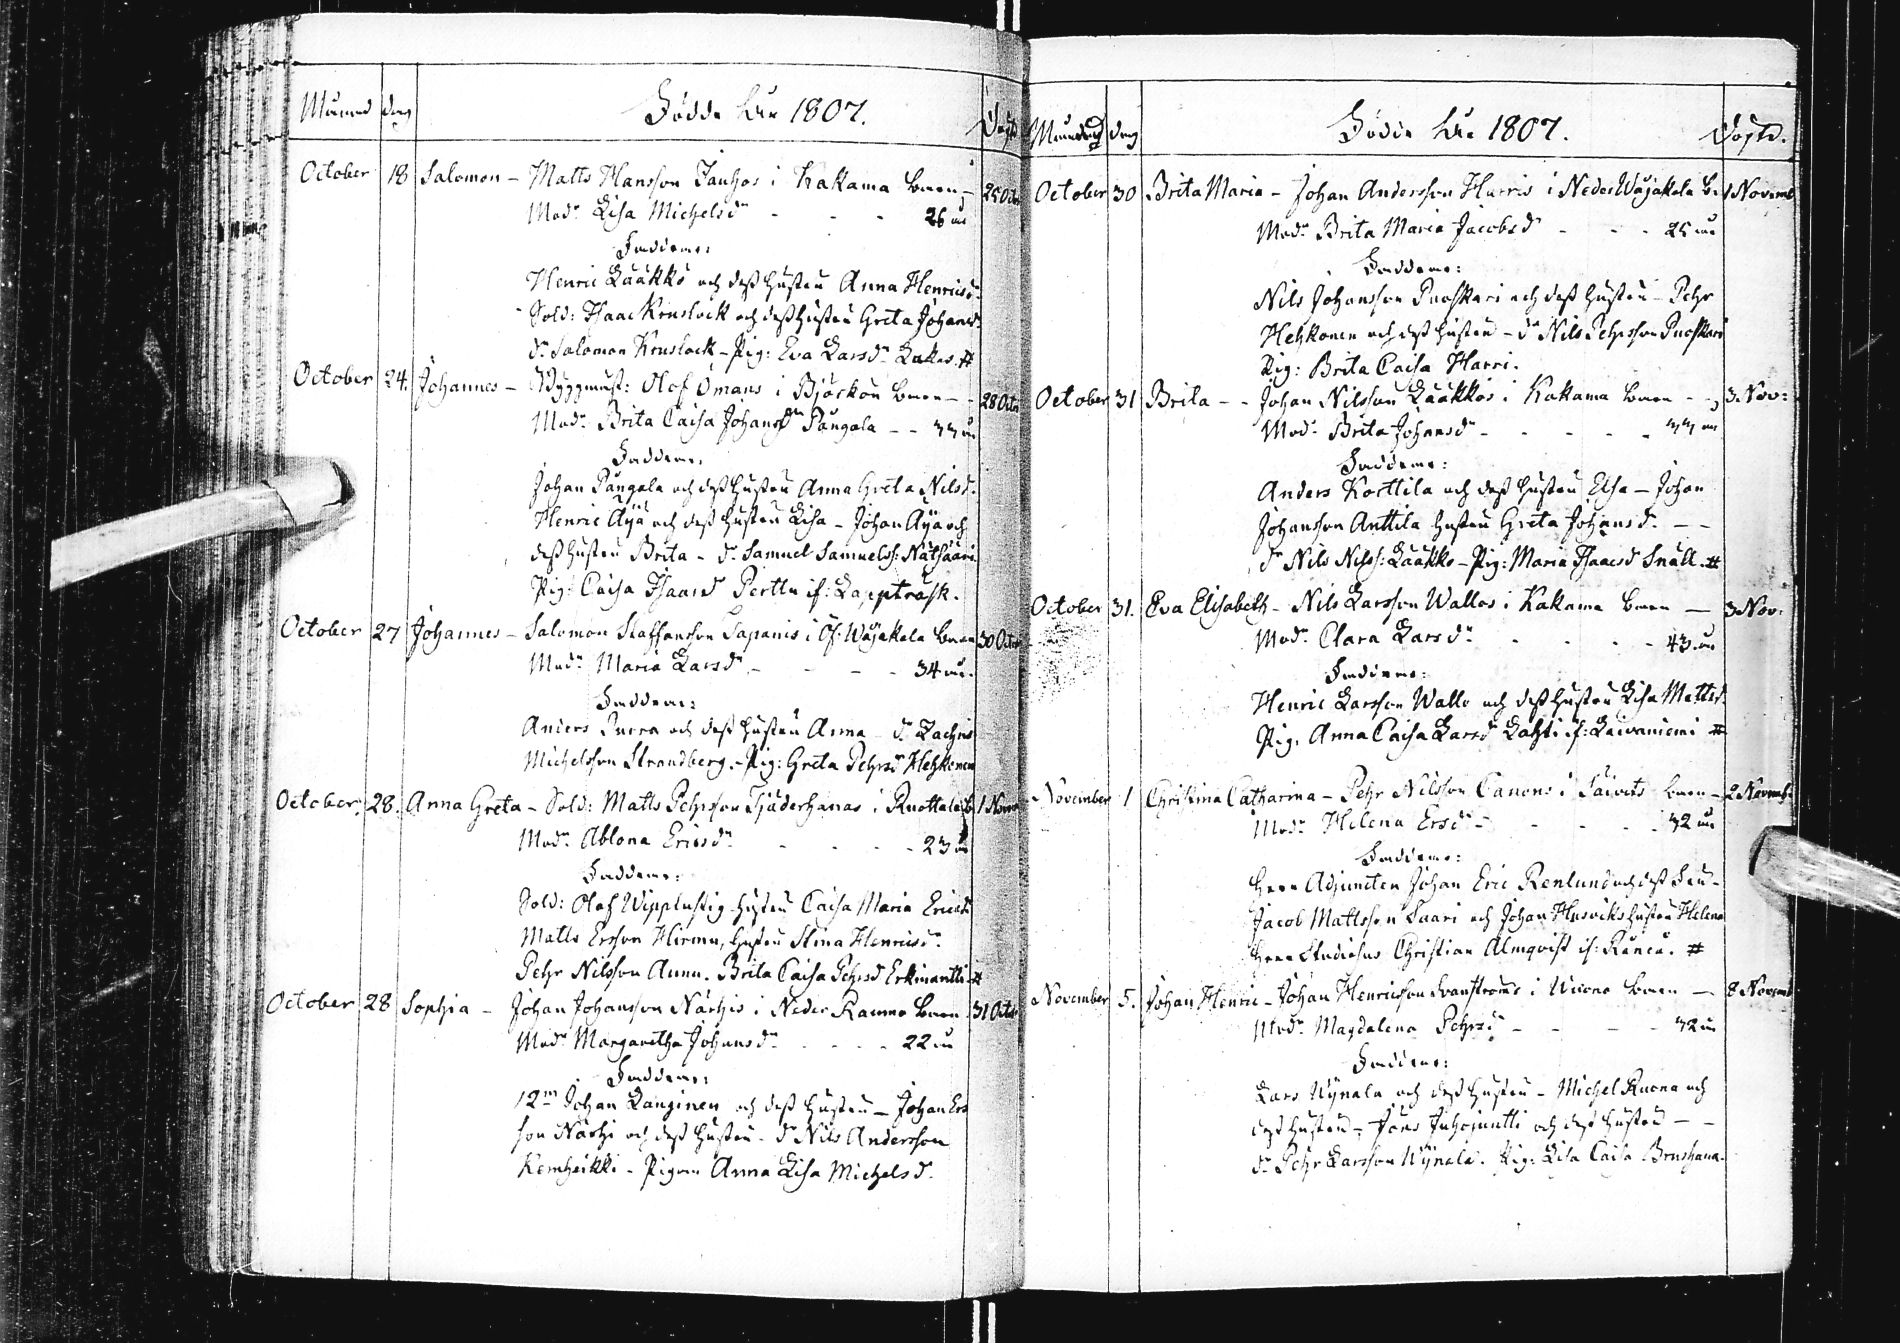 Månad dag Födde Åhr 1807. Döpte
October 18 Salomon - Matts Hansson Jauhos i Kakama barn - 25 Octo
Modr Lisa Michelsdr - - - 26 år
Faddrar:
Henric Lääkkö och dess hustru Anna Henricsd.
Sold: Isaac Kruslock och dess hustru Greta Johansd.
dr Salomon Kruslock - Pig: Eva Larsdr #
October 24. Johannes - Byggmäst: Olof Ömans i Björckön barn - - 28 Octo
Modr Brita Caisa Johansdr Pängala - - 33 år
Faddrar:
Johan Pängala och dess hustru Anna Greta Nilsd.
Henric Äijä och dess hustru Lisa - Johan Äijä och
dess hustru Brita - dr Samuel Samuelss:
Pig: Caisa Isaacsd Perttu if: Lappträsk.
October 27 Johannes - Salomon Staffansson Lapanis i Öf: Wojakala barn 30 Octo
Modr Maria Larsdr - - - 34 år.
Faddrar:
Anders och dess hustru Anna - dr Zachris
Michelsson Strandberg. - Pig: Greta Pehrsd Hehkonen
October. 28. Anna Greta - Sold: Matts Pehrsson Tjäderhanas i Ruottala b. 1 Novem
Modr Ablona Ericsdr - - - 23 år
Faddrar:
Sold: Olof Wipplustig hustru Caisa Maria Ericsd
Matts Ersson Hirmu, hustru Stina Henricsdr.
Pehr Nilsson Aunu. Brita Caisa Pehrsd Erkinantti #
October 28 Sophia - Johan Johansson Närhis i Neder Raumo barn 31 Octo
Modr Margaretha Johansdr - - - 22 år
Faddrar:
12mn Johan Langinen och dess hustru - Johan Ers
son Närhi och dess hustru - dr Nils Andersson
Kemheikki - Pigan Anna Lisa Michelsd.
Månad dag Födde Åhr 1807. Döpte.
October 30 Brita Maria - Johan Andersson Harris i Neder Wojakala b. 1 Novemb
Modr Brita Maria Jacobsdr - - - 25 år
Faddrar:
Nils Johansson Puoskari och dess hustru - Pehr
Hehkonen och dess hustru - dr Nils Pehrsson Puoskari
Pig: Brita Caisa Harri.
October 31 Brita - - Johan Nilsson Lääkkös i Kakama barn - - 3 Nov:
Modr Brita Johansdr - - - - 33 år
Faddrar:
Anders Korttila och dess hustru Elsa - Johan
Johansson Anttila hustru Greta Johansd. - -
dr Nils Nilss: Lääkkö - Pig: Maria Isaacsd Snäll. #
October 31. Eva Elisabeth - Nils Larsson Wallos i Kakama barn - 3 Nov:
Modr Clara Larsdr - - - 43. år
Faddrar:
Henric Larsson Wallo och dess hustru Lisa Mattsd.
Pig. Anna Caisa Larsd Lahti if: Laivaniemi #
November 1 Christina Catharina - Pehr Nilsson Canons i Säivits barn - 2 Novemb
Modr Helena Ersdr - - - - 32 år
Faddrar:
Herr Adjuncten Johan Eric Renlund och dess Fru -
Jacob Mattsson Saari och Johan hustru Helena
Herr Studiosus Christian Almqvist if: Råneå. #
November 5. Johan Henric - Johan Henricsson Svanströms i barn - 8 Novemb
Modr Magdalena Pehrsdr - - - - 32 år
Faddrar:
Lars Nynälä och dess hustru - Michel Ruona och
dess hustru - Jöns Juhojuntti och dess hustru - -
dr Pehr Larsson Nynälä. Pig: Lisa Caisa